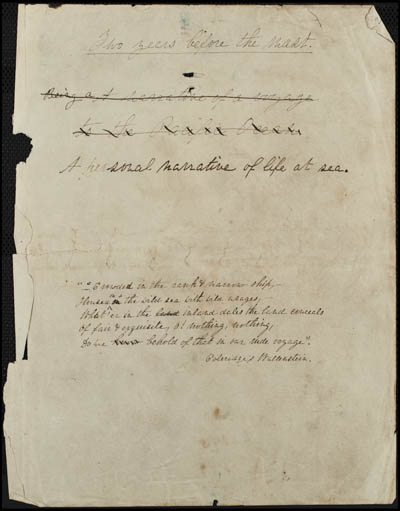 Two years before the mast.
Being a A narrative of a voyage
to the Pacific Ocean.
A personal narrative of life at sea.
"— Crowded in the rank & narrow ship,—
Housed on the wild sea with wild usages,
Whate'er in the land inland dales the land conceals
Of fair & exquisite, O! nothing, nothing,
Do we behold of that in our rude voyage".
Coleridge's Wallenstein.